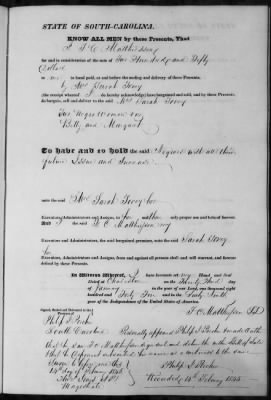 STATE OF SOUTH-CAROLINA.
KNOW ALL MEN by these Presents, That
I F. C. Matthiessen
for and in consideration of the sum of Six Hundred and Fifty
Dollars
to me in hand paid, at and before the sealing and delivery of these Presents,
by Mrs Sarah
(the receipt whereof I do hereby acknowledge) have bargained and sold, and by these Presents
do bargain, sell and deliver to the said Mrs Sarah
Two Negro Women
Betty and Margaret
To have and to hold the said Negroes with all their
future Issue and Increase
unto the said Mrs Sarah her
Executors, Administrators and Assigns, to her and their only proper use and behoof forever.
And I the said F. C. Matthiessen my
Executors and Administrators, the said bargained premises, unto the said Sarah
her
Executors, Administrators and Assigns, from and against all persons shall and will warrant, and forever
defend by these Presents.
In Witness Whereof, I have hereunto set my Hand and Seal
Dated at Charleston on the day
of January in the year of our Lord, one thousand eight
hundred and Forty Five and in the Sixty Ninth
year of the Independence of the United States of America.
Signed, Sealed and Delivered
F. C. Matthiessen
Philip J. Porcher
South Carolina Personally appeared Philip J. Porcher made Oath
that he saw F. C. Matthiessen sign and deliver the Bill of Sale
Sworn to before me this
14th day of February 1845
Philip J. Porcher
Magistrate
Recorded 14th February 1845